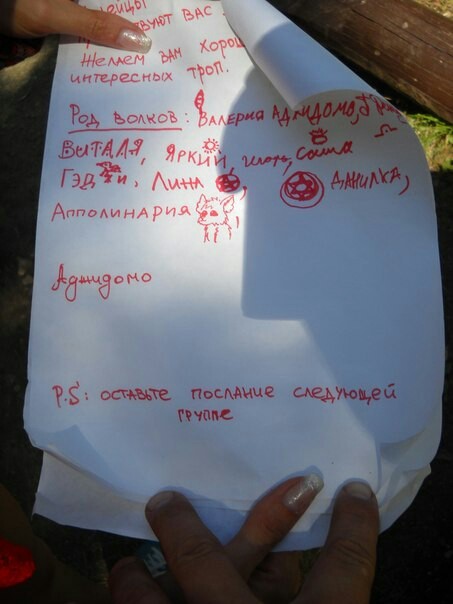 вуют вас
Желаем вам хорош
интересных троп.
Род волков: Валерия Аджидомо,
Виталя, Яркий, Саша
Гэд и, Лина, Данилка,
Апполинария,
Аджидомо
P.S: оставьте послание следующей
группе